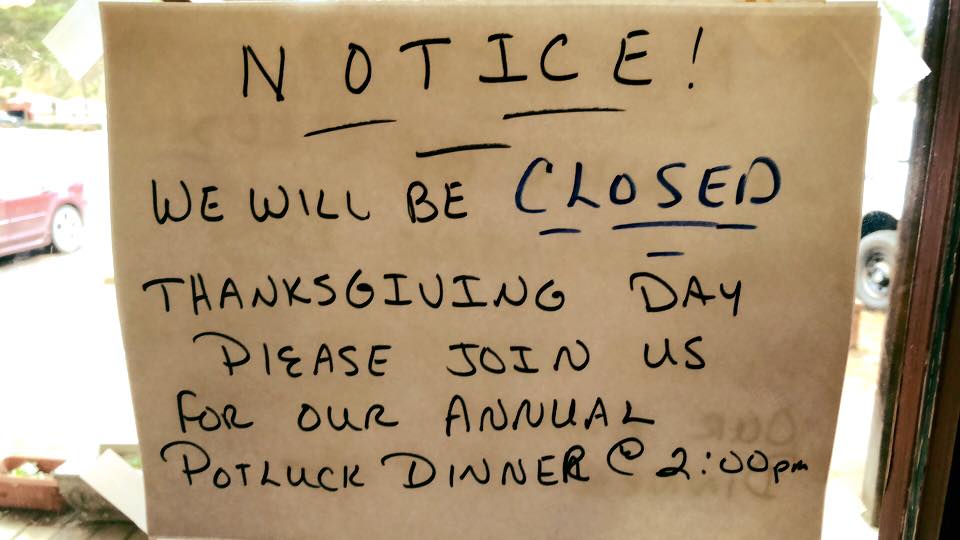 NOTICE!
WE WILL BE CLOSED
THANKSGIVING DAY
PLEASE JOIN US
FOR OUR ANNUAL
POTLUCK DINNER @ 2:00pm